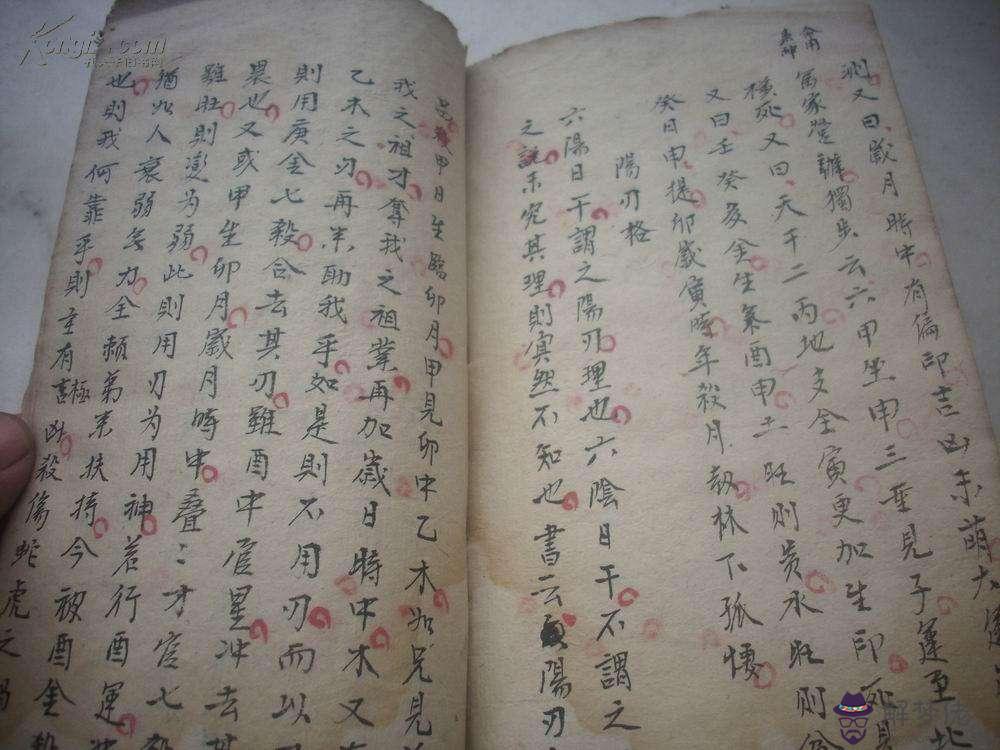 測又曰歲月時中有偏印吉凶未萌大運
富家營辦獨步云六甲坐申三重見子運至北
橫死又曰天干二丙地支全寅更加生印死見
又曰壬癸多金生氣酉申土旺則贵水旺則
癸日申提卯歲寅時年殺月劫林下孤悽
陽刃格
六陽日干謂之陽刃理也六陰日干不謂之
之說未究其理則寘然不知也書云陽刃
甲日生臨卯月甲見卯中乙木如兄見
我之祖才奪我之祖業再加歲日時中木又
乙木之刃再來助我乎如是則不用刃而以
則用庚金七殺合去其刃雖酉中官星冲去
畏也又或甲生卯月歲月時中叠〻才官七
雖旺則逆为弱此則用刃为用神若行酉運
猶如人衰弱无力全賴弟來扶持今被酉金
也則我何靠乎則主有極凶殺傷蛇虎之
Kongfz.com
解梦佬